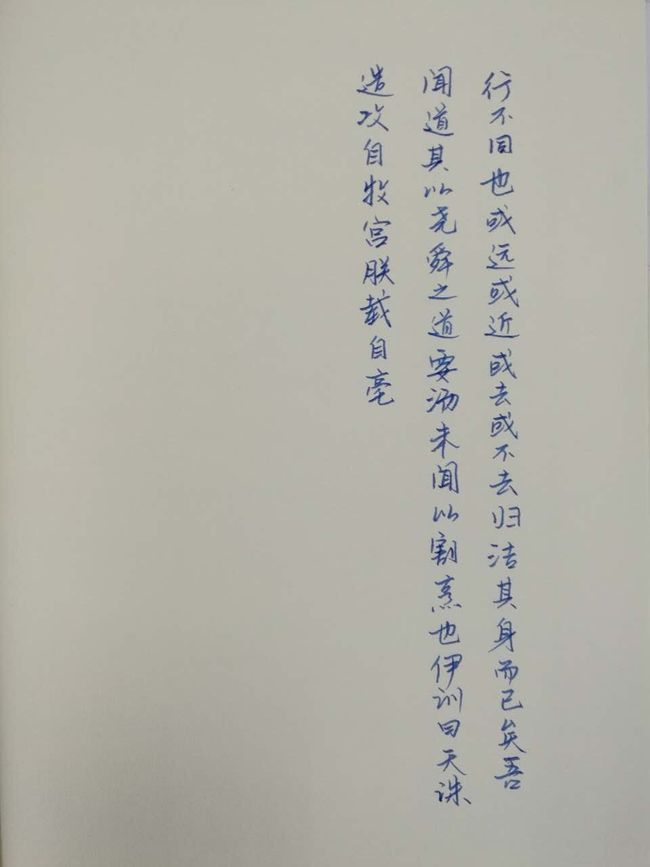 行不同也或远或近或去或不去归洁其身而已矣吾
闻道其以尧舜之道要汤未闻以割烹也伊训曰天诛
造攻自牧宫朕载自亳